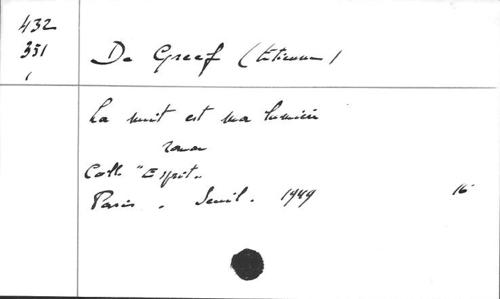 432
351
1
De Greef (Etienne)
La nuit est ma lumière
roman
Coll. "Esprit".
Paris. Seuil. 1949 16